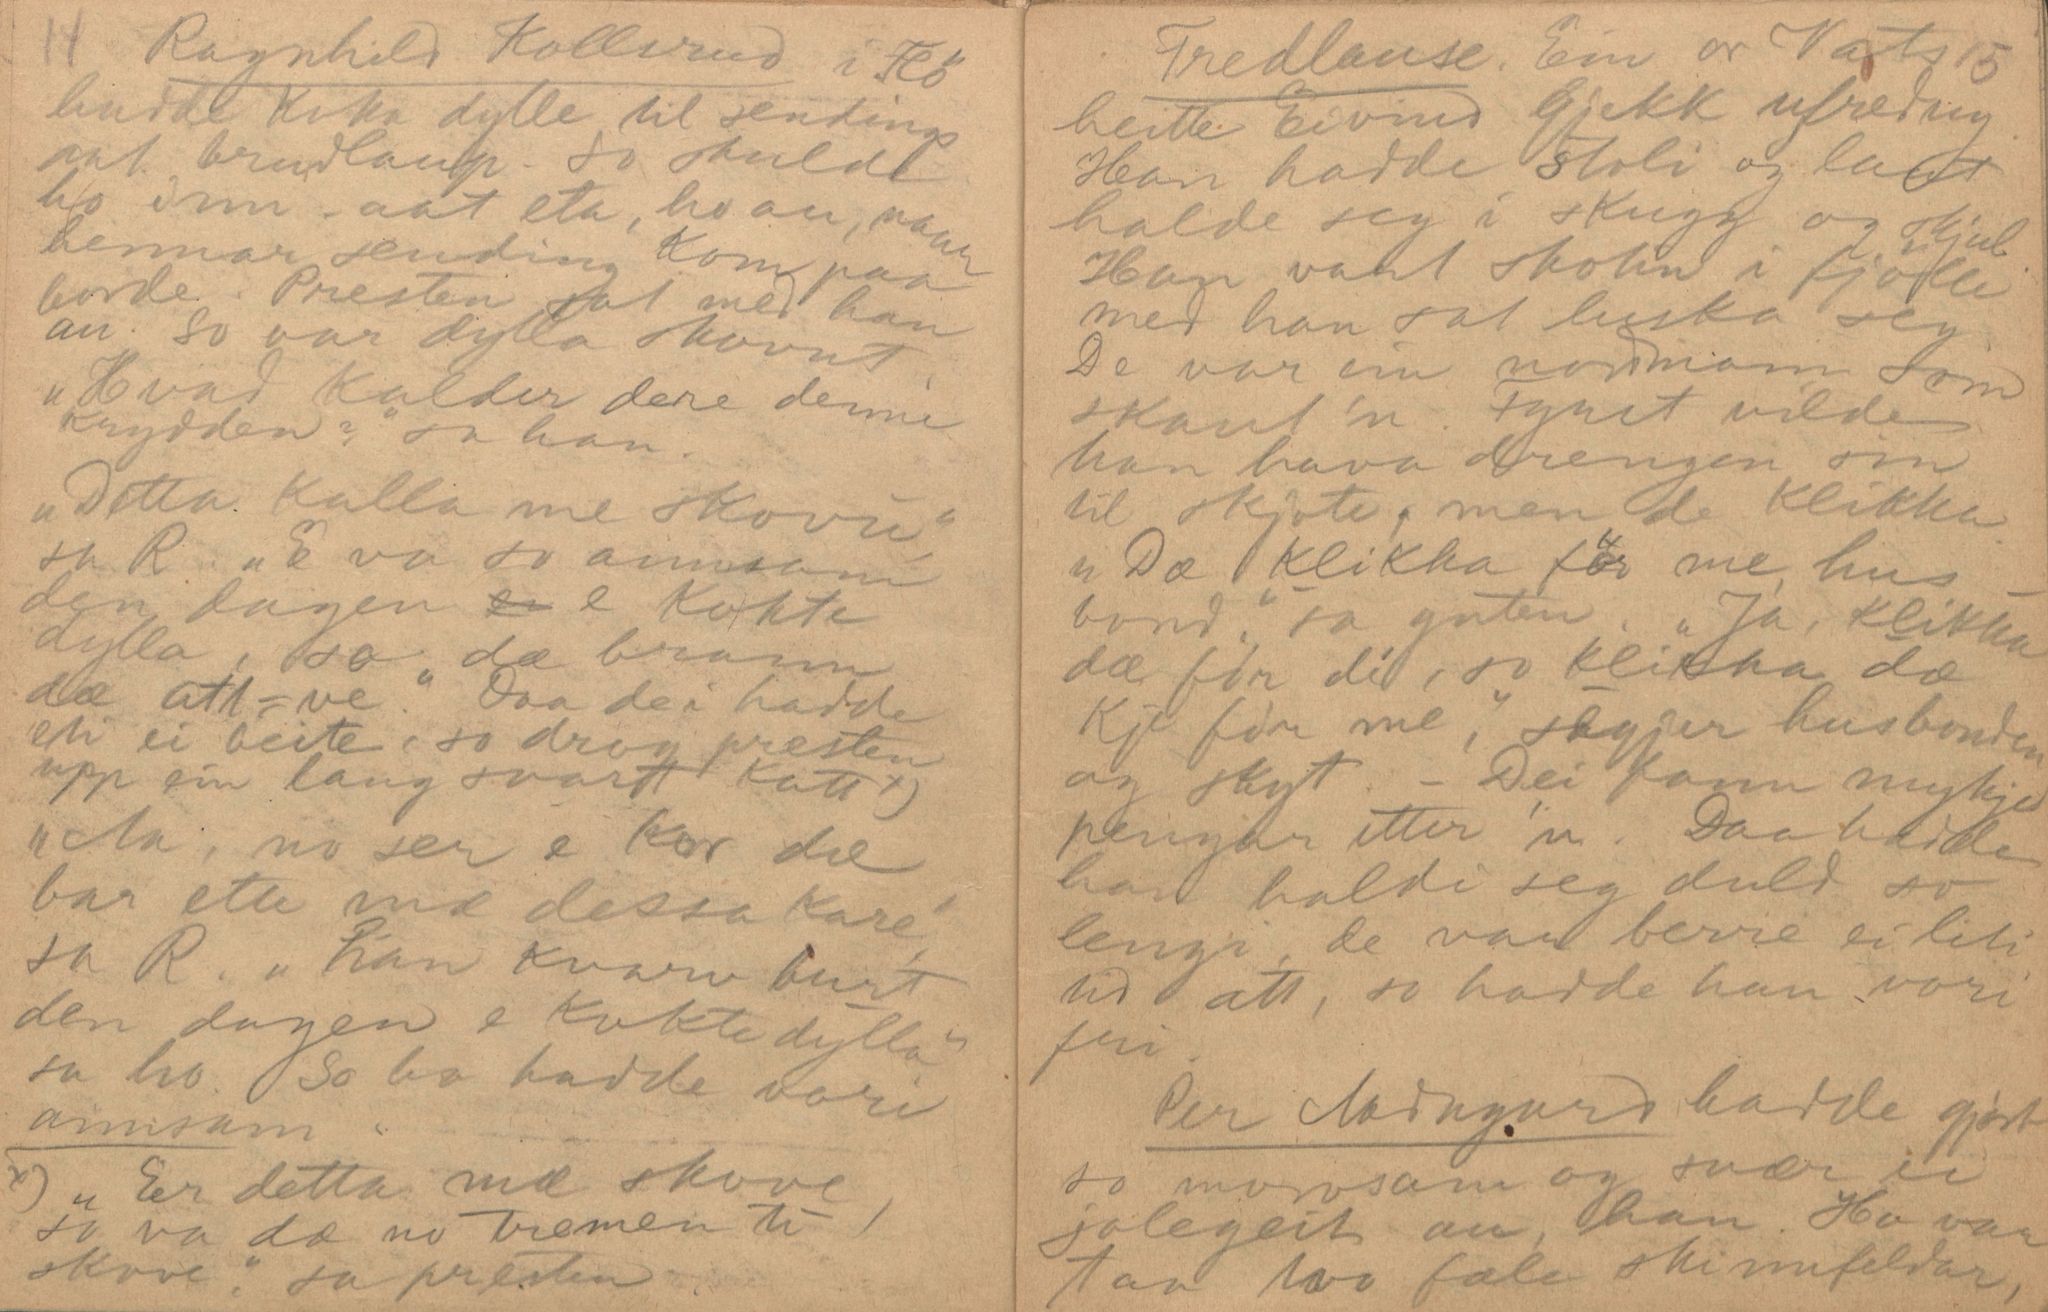 14 Ragnhild Kollsrud i Flö
hadde koka dylle til sending
aat brudlaup. So skulde
ho inn aat eta, ho au, naar
hennar sending kom paa
borde. Presten sat med han
au. So var dylla skovut,
„Hvad kalder dere denne
krydden?" sa han.
„Detta kalla me skovu"
sa R. „E va so annsam
den dagen e kokte
dylla, so dæ brann
dæ att-ve." Daa dei hadde
eti ei beite, so drog presten
upp ein lang svart katt x)
„Aa, no ser e kor dæ
bar ette mæ dessa kare,"
sa R. „Han kvarv burt
den dagen e kokte dylla"
sa ho. So ho hadde vori
annsam.
x) „Er detta mæ skove,
so va dæ no tremen ti
skove," sa presten.
Fredlause. Ein or Vats 15
heitte Eivind Gjekk ufredug.
Han hadde stoli og laut
halde seg i skugg og skjul.
Han vart skotin i fjölle
med han sat luska seg
De var ein nordmann som
skaut'n. Fyrst vilde
han hava drengen sin
til skjote, men de klikka
„Dæ klikka för me, hus-
bond," sa guten. „Ja, klikka
dæ för di, so klikka dæ
kje för me," segjer husbonden
og skyt. - Dei fann mykje
pengar etter 'n. Daa hadde
han haldi seg duld so
lengi, de var berre ei liti
tid att, so hadde han vori
fri.
Per Aadngard hadde gjort
so morosam og svær ei
jolegeit au, han. Ho var
tan två fæle skinnfeldar,